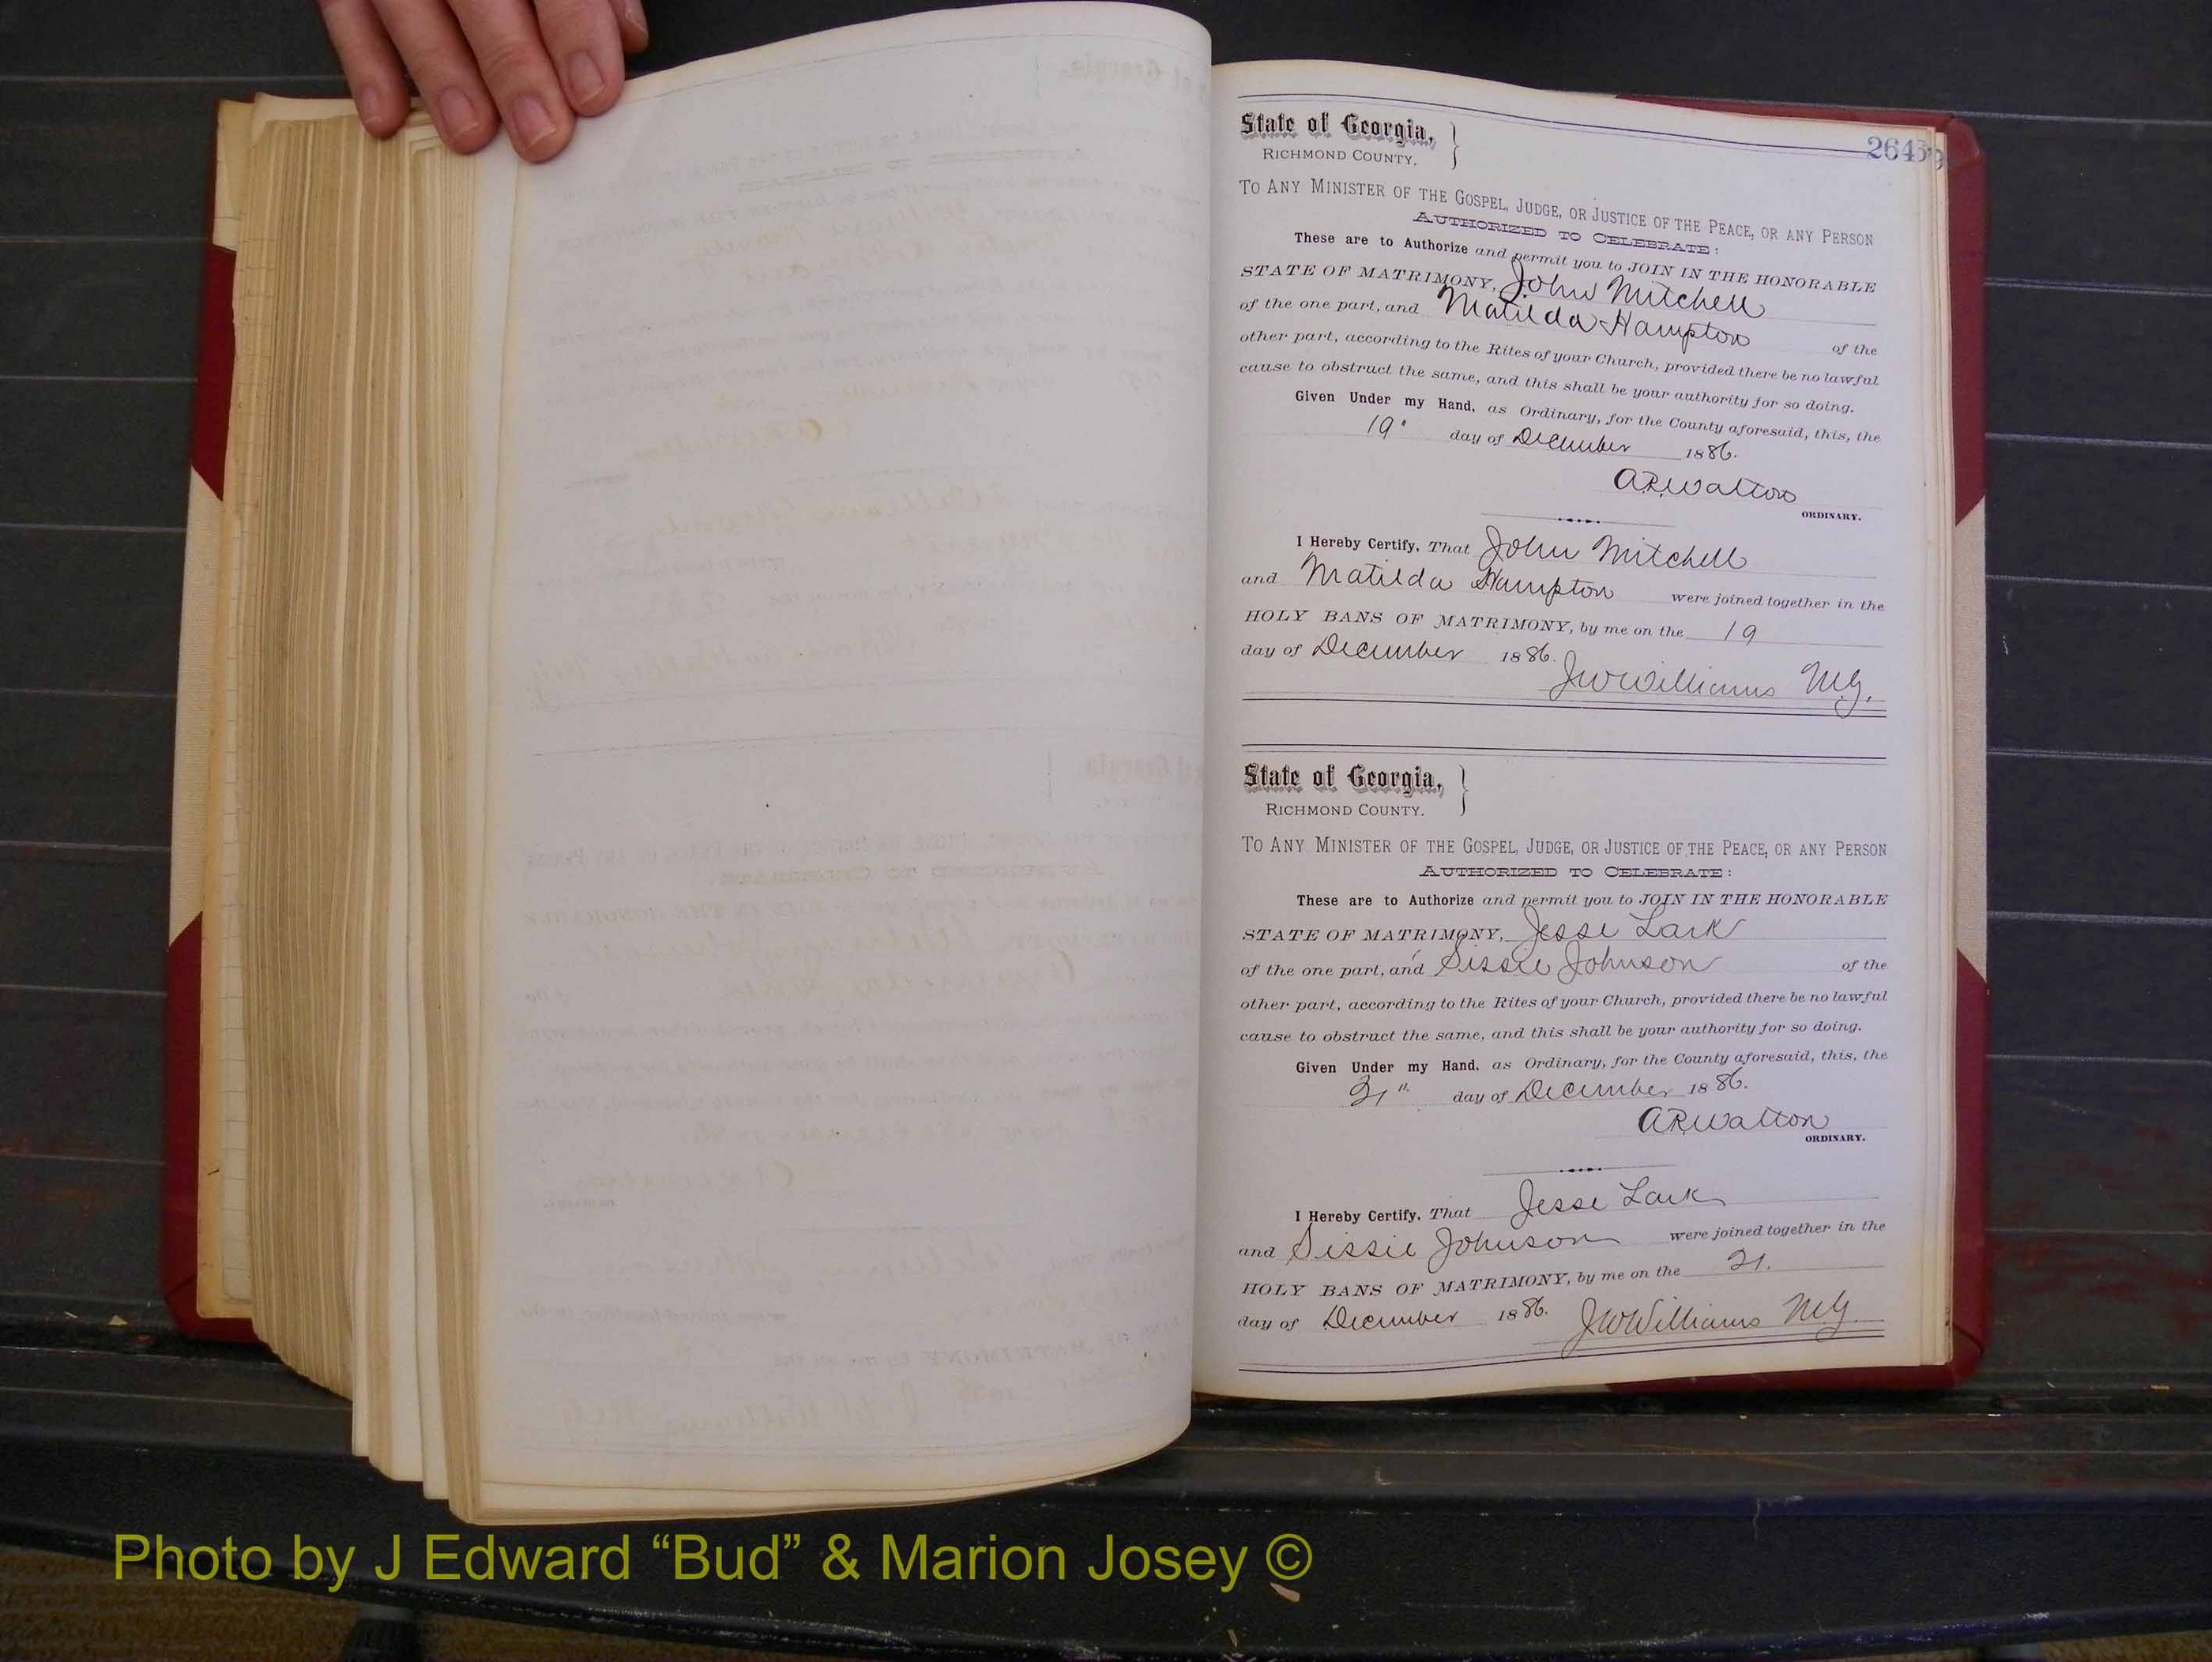 264
State of Georgia,
RICHMOND COUNTY.
TO ANY MINISTER OF THE GOSPEL, JUDGE, OR JUSTICE OF THE PEACE, OR ANY PERSON
AUTHORIZED TO CELEBRATE:
These are to Authorize and permit you to JOIN IN THE HONORABLE
STATE OF MATRIMONY, John Mitchell
of the one part, and Matilda Hampton of the
other part, according to the Rites of your Church, provided there be no lawful
cause to obstruct the same, and this shall be your authority for so doing.
Given Under my Hand, as Ordinary, for the County aforesaid, this, the
19" day of December 1886.
A.R. Walton
ORDINARY.
I Hereby Certify, That John Mitchell
and Matilda Hampton were joined together in the
HOLY BANS OF MATRIMONY, by me on the 19
day of December 1886.
JW Williams M.G.
State of Georgia,
RICHMOND COUNTY.
TO ANY MINISTER OF THE GOSPEL, JUDGE, OR JUSTICE OF THE PEACE, OR ANY PERSON
AUTHORIZED TO CELEBRATE:
These are to Authorize and permit you to JOIN IN THE HONORABLE
STATE OF MATRIMONY, Jesse Lark
of the one part, and Sissie Johnson of the
other part, according to the Rites of your Church, provided there be no lawful
cause to obstruct the same, and this shall be your authority for so doing.
Given Under my Hand, as Ordinary, for the County aforesaid, this, the
day of December 1886.
A.R. Walton
ORDINARY.
I Hereby Certify, That Jesse Lark
and Sissie Johnson were joined together in the
HOLY BANS OF MATRIMONY, by me on the
day of December 1886. JW Williams M.G.
Photo by J Edward “Bud” & Marion Josey ©